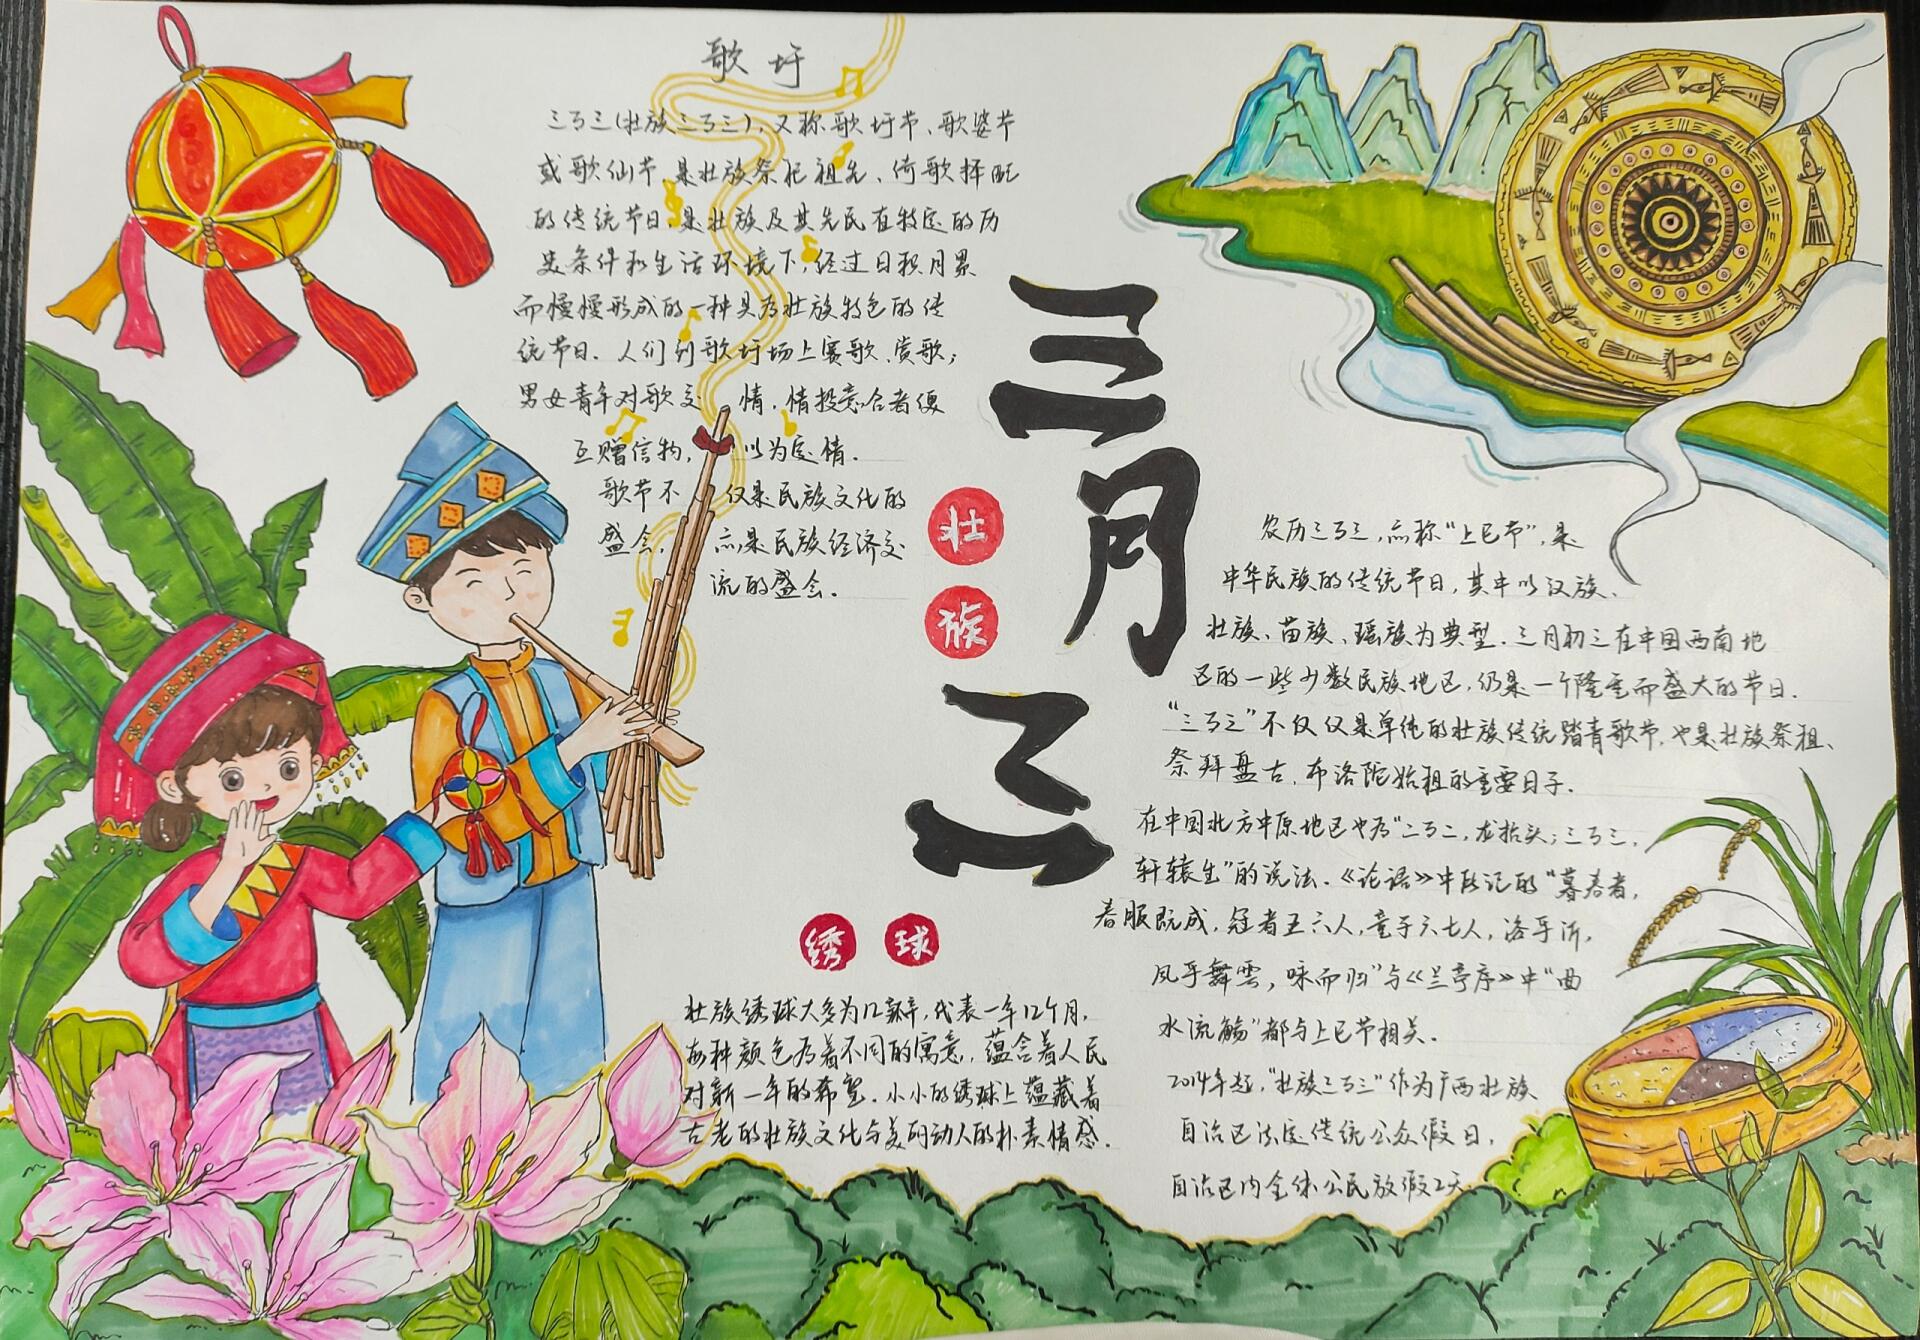 歌圩
三月三(壮族三月三),又称歌圩节、歌婆节
或歌仙节,是壮族祭祀祖先、倚歌择配
的传统节日,是壮族及其先民在特定的历
史条件和生活环境下,经过日积月累
而慢慢形成的一种具有壮族特色的传
统节日.人们到歌圩场上赛歌、赏歌;
男女青年对歌交情,情投意合者便
互赠信物,以为定情.
歌节不仅是民族文化的
盛会,亦是民族经济交
流的盛会.
三月三
壮族
农历三月三,亦称“上巳节”,是
中华民族的传统节日,其中以汉族、
壮族、苗族、瑶族为典型.三月初三在中国西南地
区的一些少数民族地区,仍是一个隆重而盛大的节日.
“三月三”不仅仅是单纯的壮族传统踏青歌节,也是壮族祭祖、
祭拜盘古,布洛陀始祖的重要日子.
在中国北方中原地区也有“二月二,龙抬头;三月三,
轩辕生”的说法.《论语》中所记的“暮春者,
春服既成,冠者五六人,童子六七人,洛乎沂,
风乎舞雲,咏而归”与《兰亭序》中“曲
水流觞”都与上巳节相关.
2014年起,“壮族三月三”作为广西壮族
自治区法定传统公众假日,
自治区内全体公民放假2天
绣球
壮族绣球大多为12瓣,代表一年12个月,
每种颜色有着不同的寓意,蕴含着人民
对新一年的希望.小小的绣球上蕴藏着
古老的壮族文化与美的动人的朴素情感.